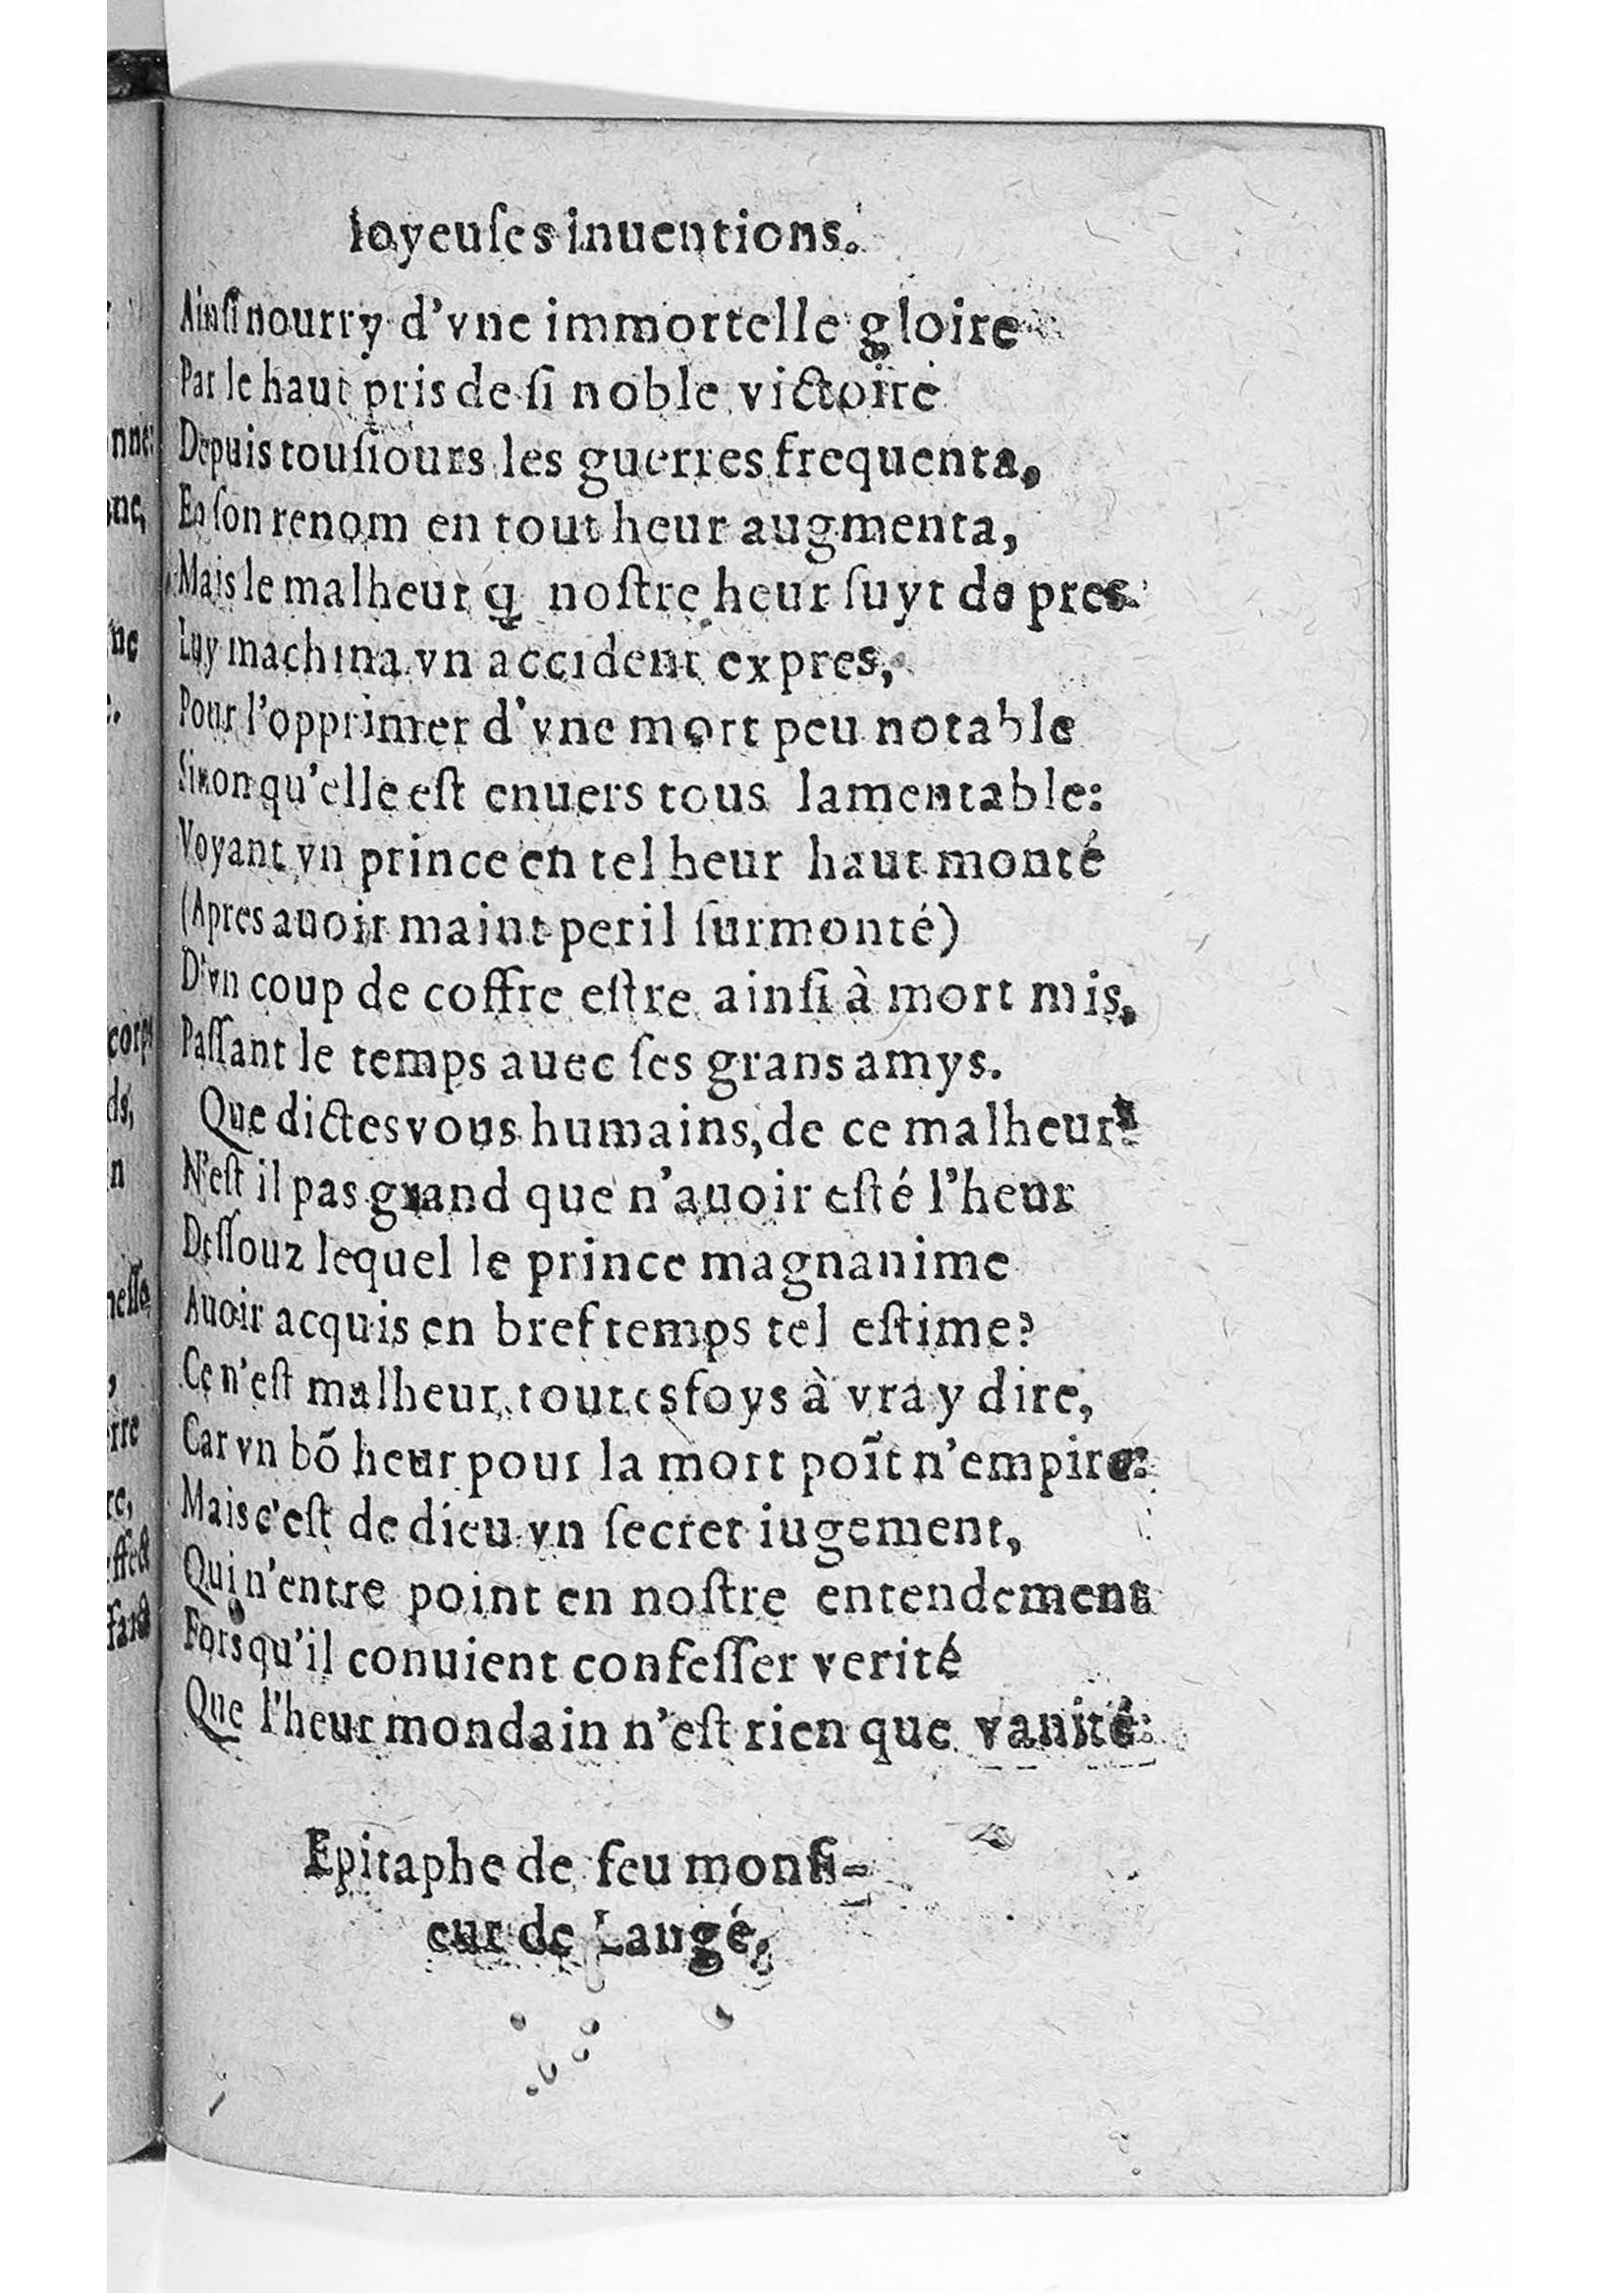 Ioyeuſes inuentions.
Ainſi nourry d'vne immortelle gloire
Par le haut pris de ſi noble victoire
Depuis touſiours les guerres frequenta,
En ſon renom en tout heur augmenta,
Mais le malheur q̃ noſtre heur ſuyt de pres
Luy machina vn accident expres,
Pour l'opprimer d'vne mort peu notable
Sinon qu'elle eſt enuers tous lamentable:
Voyant vn prince en tel heur haut monté
(Apres auoir maint peril ſurmonté)
D'vn coup de coffre eſtre ainſi à mort mis,
Paſſant le temps auec ſes grans amys.
Que dictes vous humains, de ce malheur?
N'eſt il pas grand que n'auoir eſté l'heur
Deſſouz lequel le prince magnanime
Auoir acquis en bref temps tel eſtime?
Ce n'eſt malheur toutesfoys à vray dire,
Car vn bõ heur pour la mort poĩt n'empire:
Mais c'eſt de dieu vn ſecret iugement,
Qui n'entre point en noſtre entendement
Fors qu'il conuient confeſſer verité
Que l'heur mondain n'eſt rien que vanité.
Epitaphe de feu monſi-
eur de Langé.